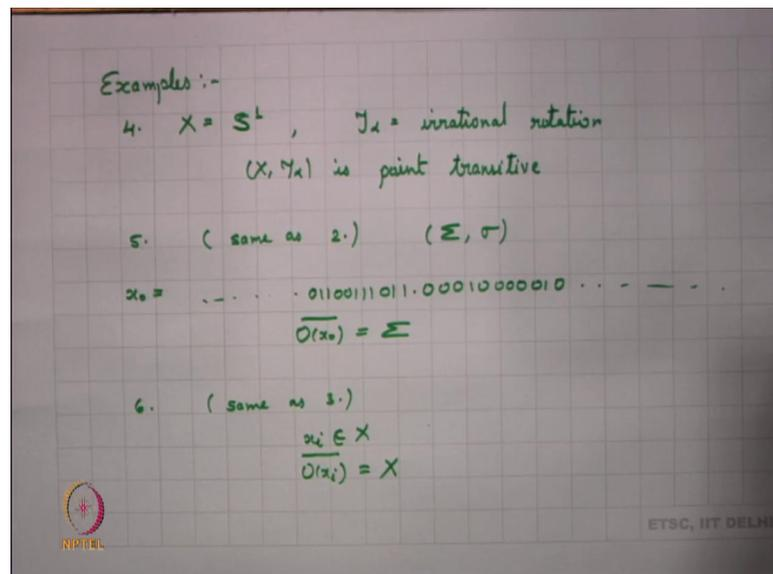 Examples :-
4. X = S¹ , T_α = irrational rotation
(X, T_α) is point transitive
5. ( same as 2.) (Σ, σ)
x₀ = ...... 01100111011.00010000010 ... - — - . .
\overline{O(x₀)} = Σ
6. ( same as 3.)
x_i ∈ X
\overline{O(x_i)} = X
NPTEL
ETSC, IIT DELHI